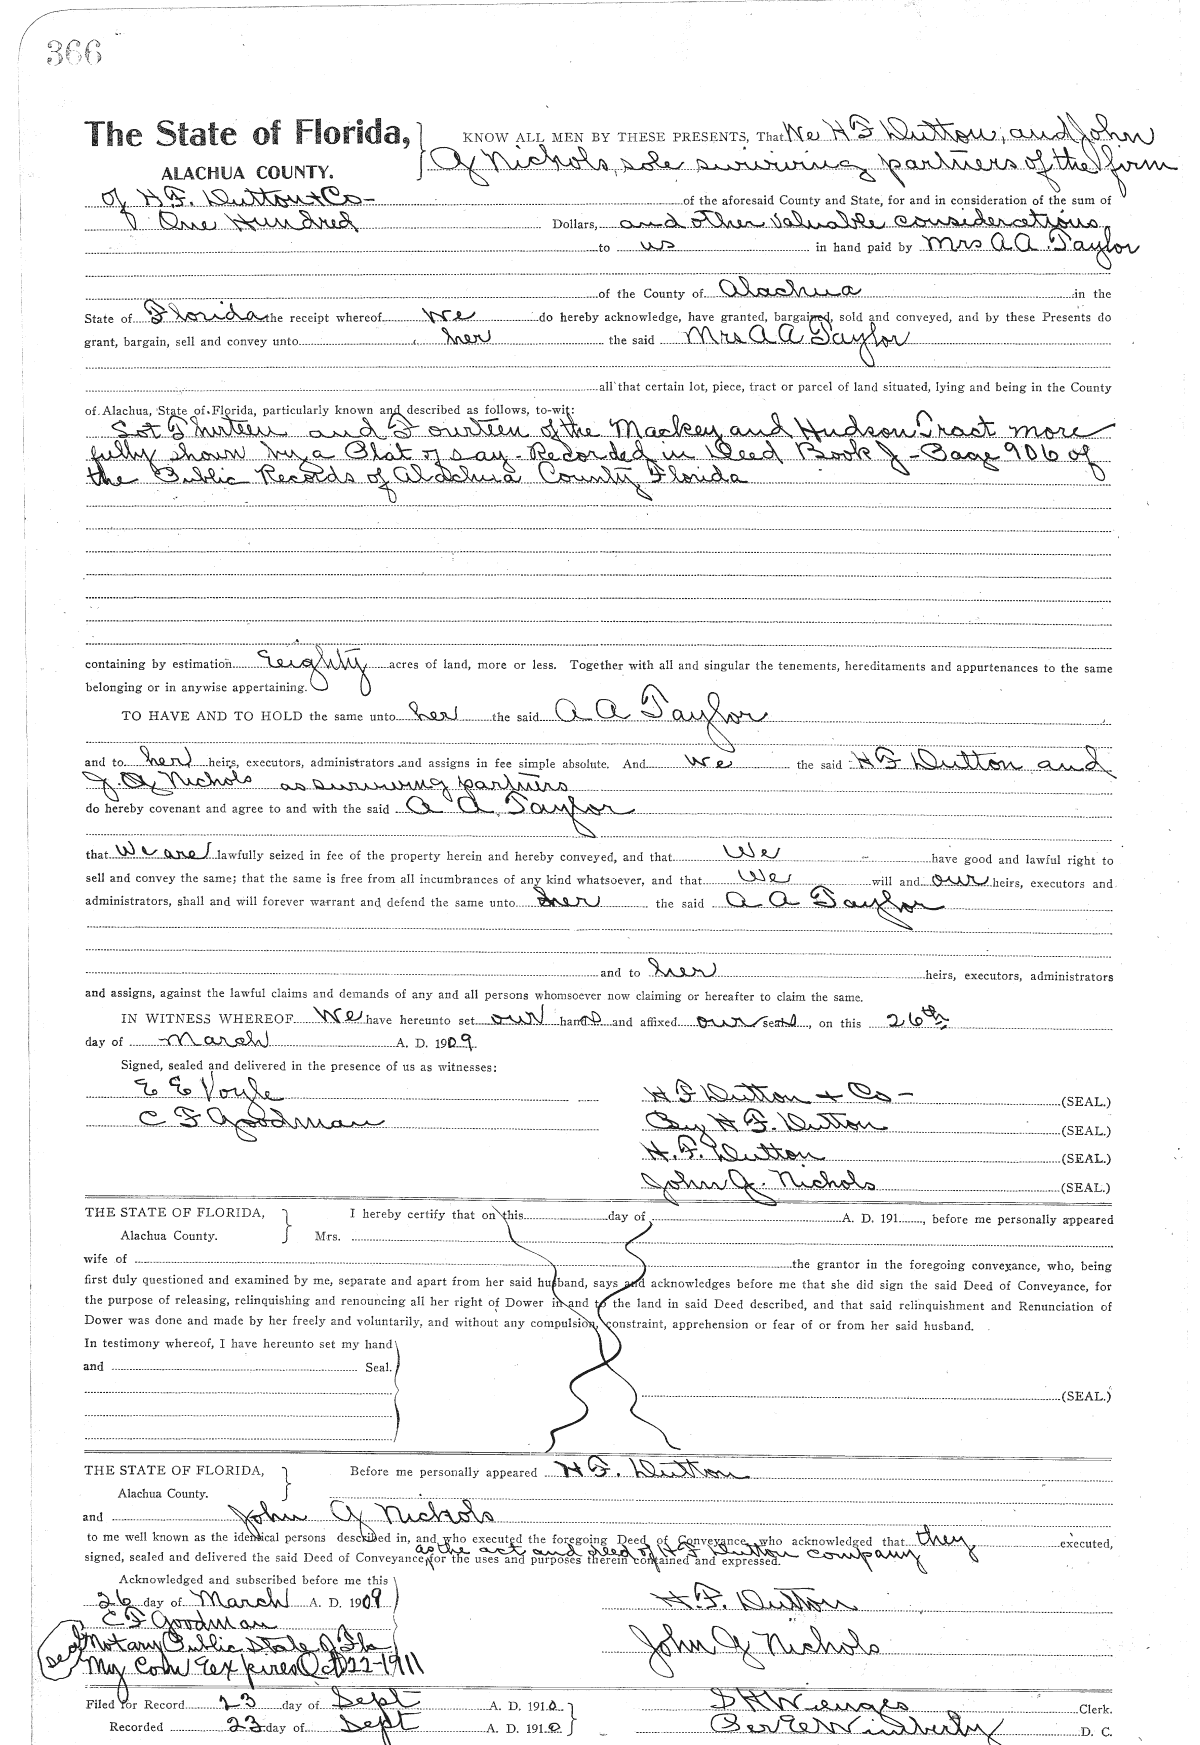 366
The State of Florida, KNOW ALL MEN BY THESE PRESENTS, That We H F Dutton, and John
ALACHUA COUNTY. G Nichols, sole surviving partners of the firm
of H F. Dutton & Co- of the aforesaid County and State, for and in consideration of the sum of
One Hundred Dollars, and other valuable considerations
to us in hand paid by Mrs A A Taylor
of the County of Alachua in the
State of Florida the receipt whereof We do hereby acknowledge, have granted, bargained, sold and conveyed, and by these Presents do
grant, bargain, sell and convey unto her the said Mrs A A Taylor
all that certain lot, piece, tract or parcel of land situated, lying and being in the County
of Alachua, State of Florida, particularly known and described as follows, to-wit:
Lot Thirteen and Fourteen of the Mackey and Hudson Tract more
fully shown by a Plat of Recorded in Deed Book J - Page 906 of
the Public Records of Alachua County Florida
containing by estimation Eeighty acres of land, more or less. Together with all and singular the tenements, hereditaments and appurtenances to the same
belonging or in anywise appertaining.
TO HAVE AND TO HOLD the same unto her the said A A Taylor
and to her heirs, executors, administrators and assigns in fee simple absolute. And we the said H F Dutton and
J. G Nichols as surviving partners
do hereby covenant and agree to and with the said A A. Taylor
that We are lawfully seized in fee of the property herein and hereby conveyed, and that We have good and lawful right to
sell and convey the same; that the same is free from all incumbrances of any kind whatsoever, and that We will and our heirs, executors and
administrators, shall and will forever warrant and defend the same unto her the said A A Taylor
and to her heirs, executors, administrators
and assigns, against the lawful claims and demands of any and all persons whomsoever now claiming or hereafter to claim the same.
IN WITNESS WHEREOF We have hereunto set our hands and affixed our seals, on this 26th
day of March A. D. 1909.
Signed, sealed and delivered in the presence of us as witnesses:
E E Voyle H F Dutton & Co- (SEAL.)
C F Goodman By H F. Dutton (SEAL.)
H. F. Dutton (SEAL.)
John G. Nichols (SEAL.)
THE STATE OF FLORIDA, I hereby certify that on this day of A. D. 191 , before me personally appeared
Alachua County. Mrs.
wife of the grantor in the foregoing conveyance, who, being
first duly questioned and examined by me, separate and apart from her said husband, says and acknowledges before me that she did sign the said Deed of Conveyance, for
the purpose of releasing, relinquishing and renouncing all her right of Dower in and to the land in said Deed described, and that said relinquishment and Renunciation of
Dower was done and made by her freely and voluntarily, and without any compulsion, constraint, apprehension or fear of or from her said husband.
In testimony whereof, I have hereunto set my hand
and Seal.
(SEAL.)
THE STATE OF FLORIDA, Before me personally appeared H F. Dutton
Alachua County.
and John G Nichols
to me well known as the identical persons described in, and who executed the foregoing Deed of Conveyance, who acknowledged that they executed,
as the act and deed of H F Dutton company
signed, sealed and delivered the said Deed of Conveyance, for the uses and purposes therein contained and expressed.
Acknowledged and subscribed before me this
26 day of March A. D. 1909 H. F. Dutton
C F Goodman
Notary Public State of Fla John G Nichols
seal My Com Expires Oct 22-1911
Filed for Record 23 day of Sept A. D. 1910 S H Wienges Clerk.
Recorded 23 day of Sept A. D. 1910 Per E Wimberly D. C.